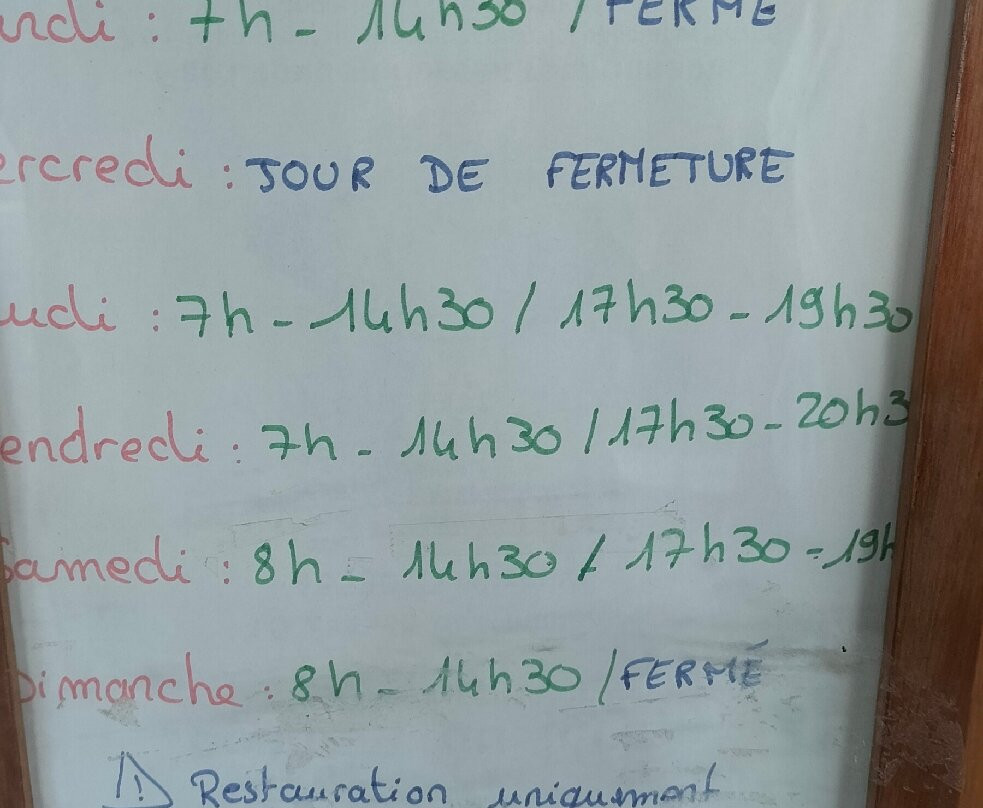 ndi : 7h - 14h30 / FERMÉ
ercredi : JOUR DE FERMETURE
udi : 7h - 14h30 / 17h30 - 19h30
endredi : 7h - 14h30 / 17h30 - 20h3
Samedi : 8h - 14h30 / 17h30 - 19h
Dimanche : 8h - 14h30 / FERMÉ
⚠ Restauration uniquement